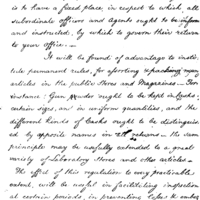 is to have a fixed place, in respect to which, all
subordinate officers and Agents ought to be inform
and instructed, by which to govern their return
to your office. —
It will be found of advantage to insti-
tute permanent rules, for assorting & packing many
articles in the public Stores and Magazines. For
instance: Gun powder ought to be kept in Casks of
certain sizes, and in uniform quantities, and the
different kinds of Casks ought to be distinguish
ed by opposite names in all returns. The same
principle may be usefully extended to a great
variety of Laboratory Stores and other articles. —
The effect of this regulation to every practicable
extent, will be useful in facilitating inspection
at certain periods, in preventing